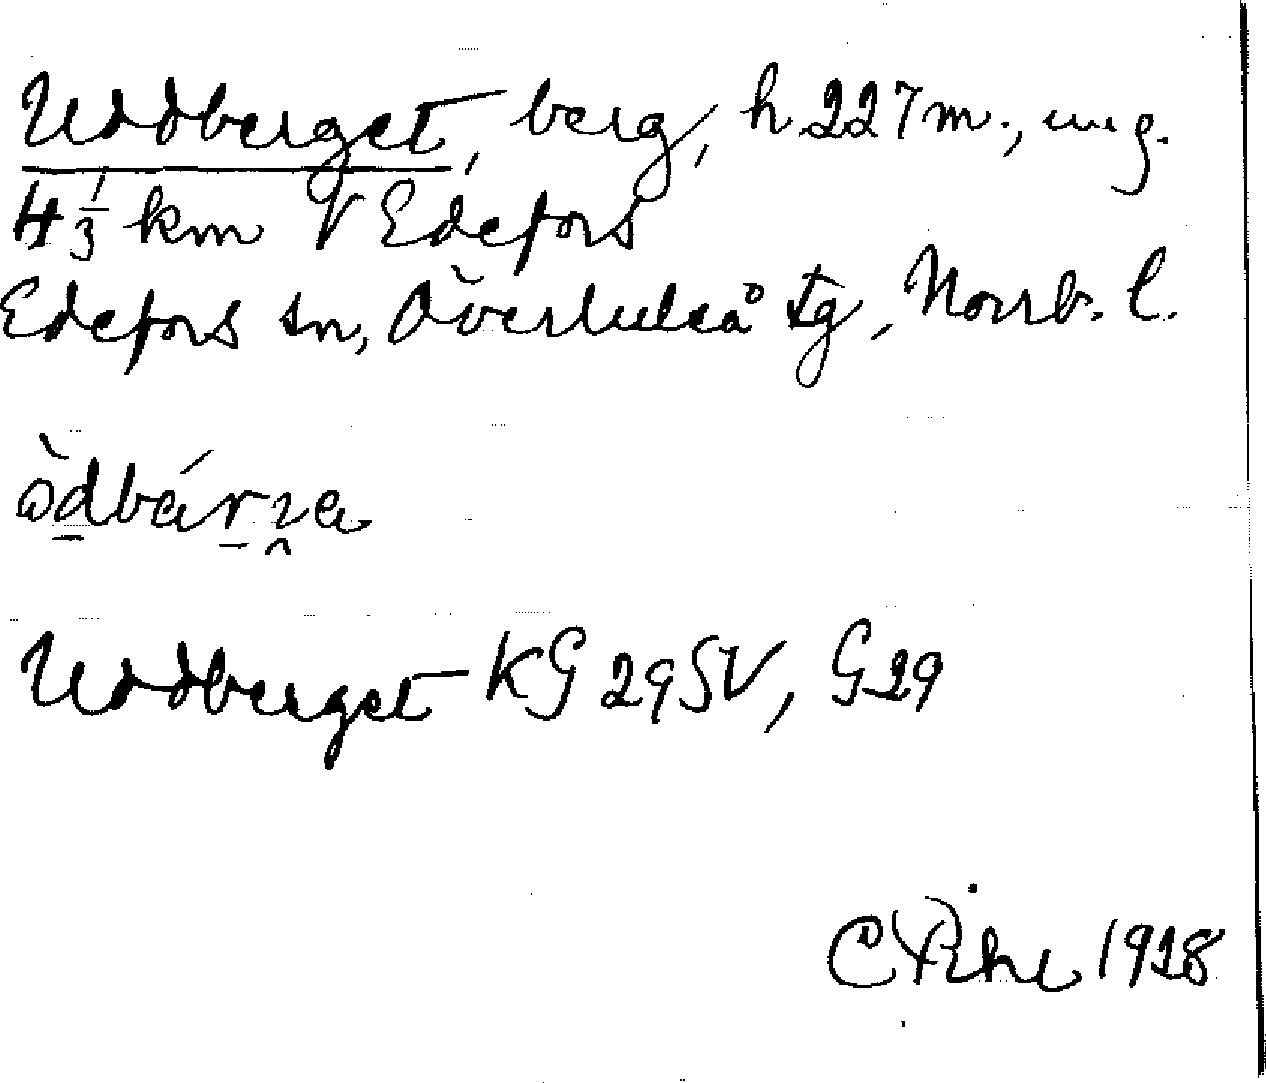 Uddberget, berg, h. 227 m., ung.
4 1/3 km V Edefors
Edefors sn, Överluleå tg, Norrb. l.
òdbárʒa
Uddberget KG 29 SV, G 29
C Pihl 1928